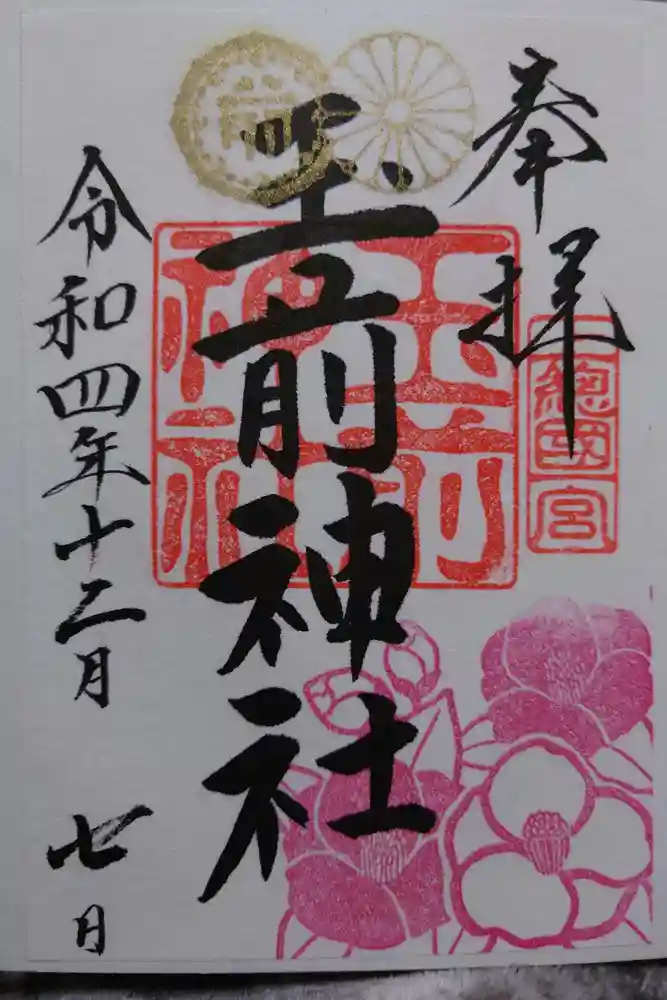 奉拝
上總國一宮
玉前神社
玉前神社
令和四年十二月七日